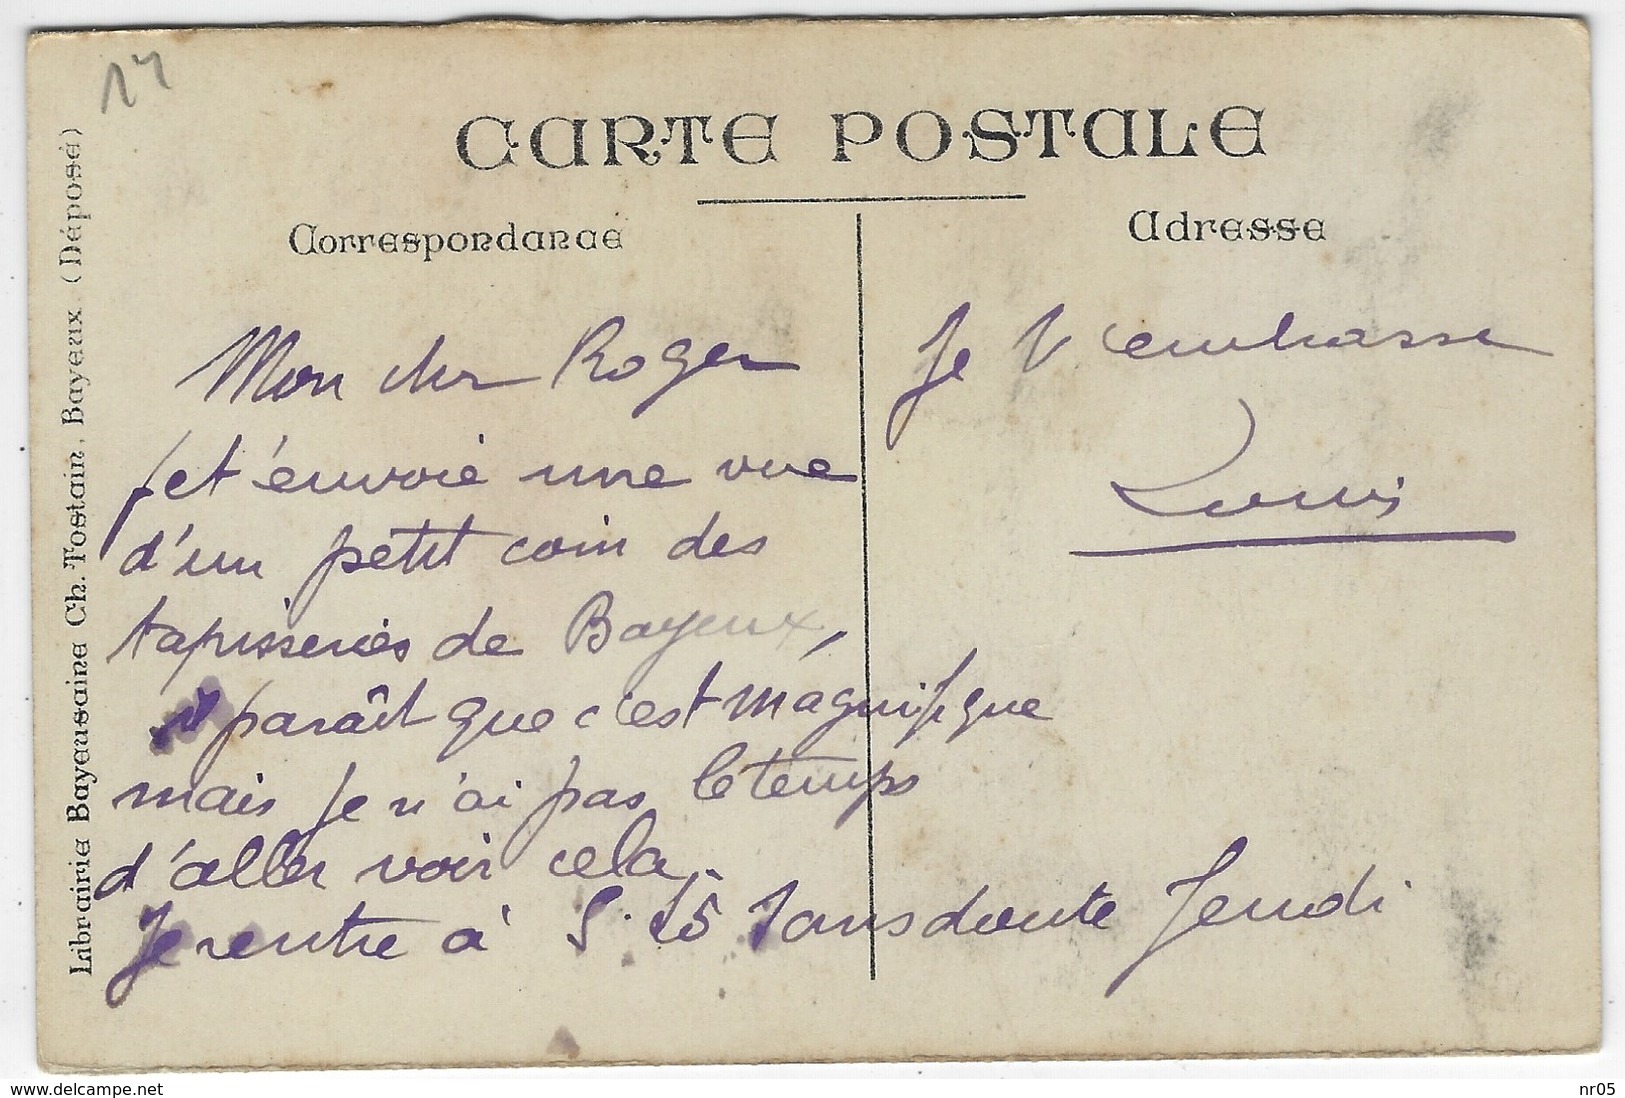 14
CARTE POSTALE
Correspondance
Adresse
Librairie Bayeusaine Ch. Tostain, Bayeux (Déposé)
Mon cher Roger
Je t'envoie une vue
d'un petit coin des
tapisseries de Bayeux,
il paraît que c'est magnifique
mais je n'ai pas le temps
d'aller voir cela.
Je rentre à sans doute Jeudi
Je t'embrasse
Louis
delcampe.net
nr05